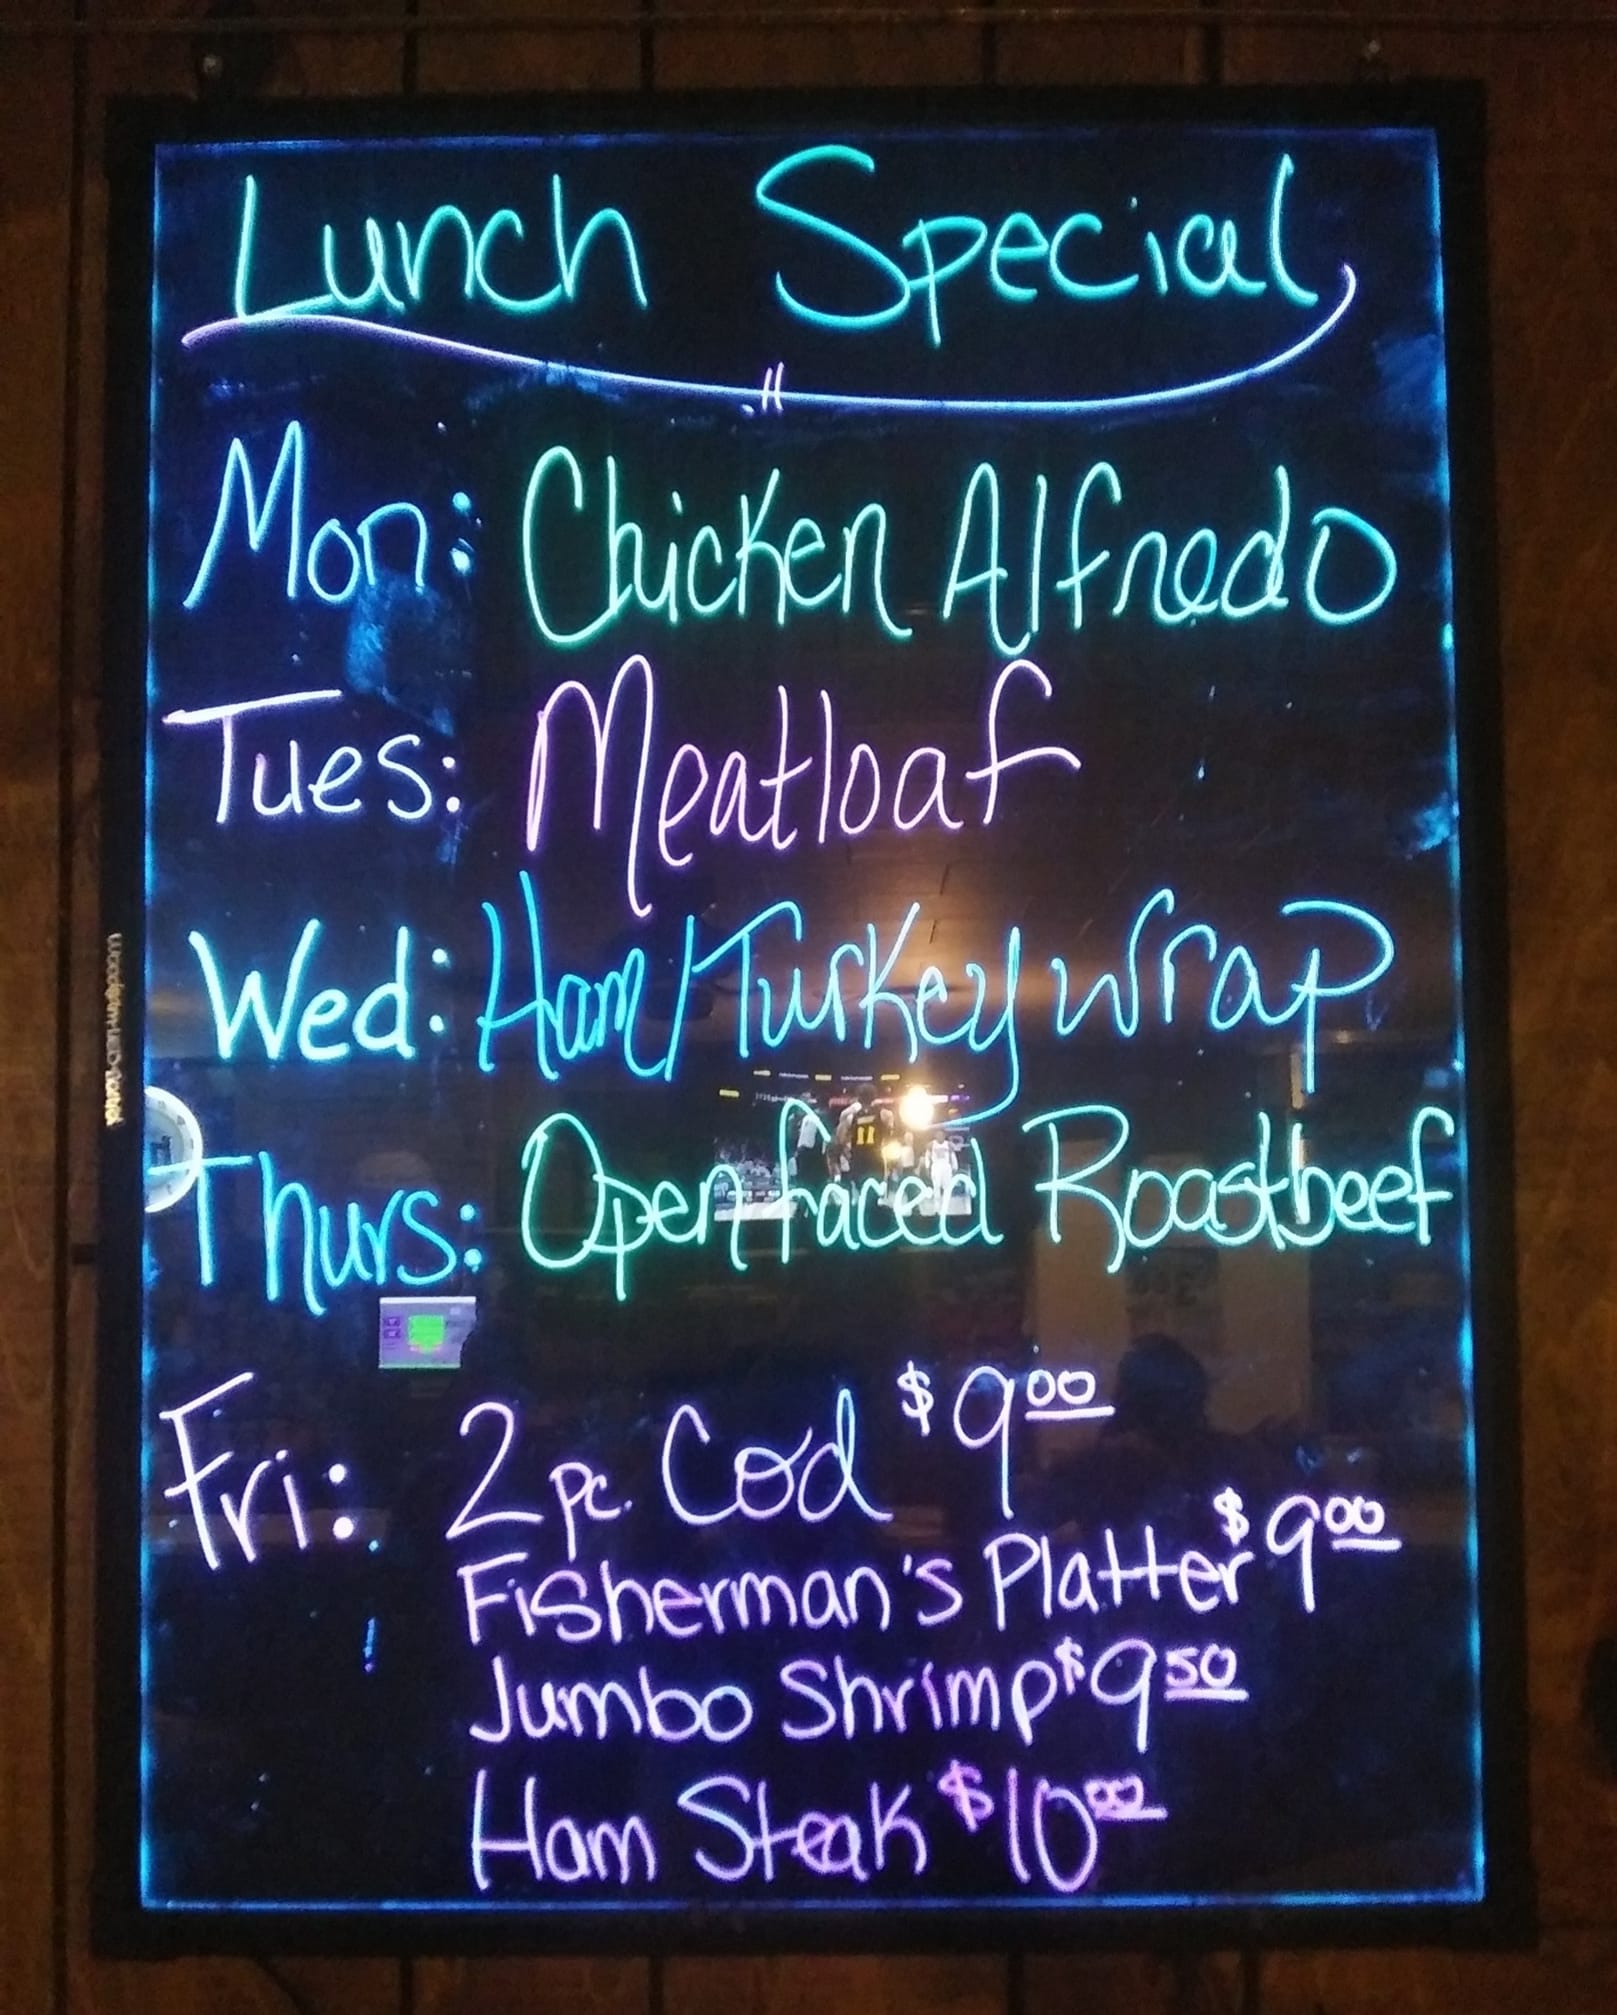 Lunch Special
Mon: Chicken Alfredo
Tues: Meatloaf
Wed: Ham/Turkey wrap
Thurs: Openfaced Roastbeef
Fri: 2 pc. Cod $9.00
Fisherman's Platter $9.00
Jumbo Shrimp $9.50
Ham Steak $10.00
11